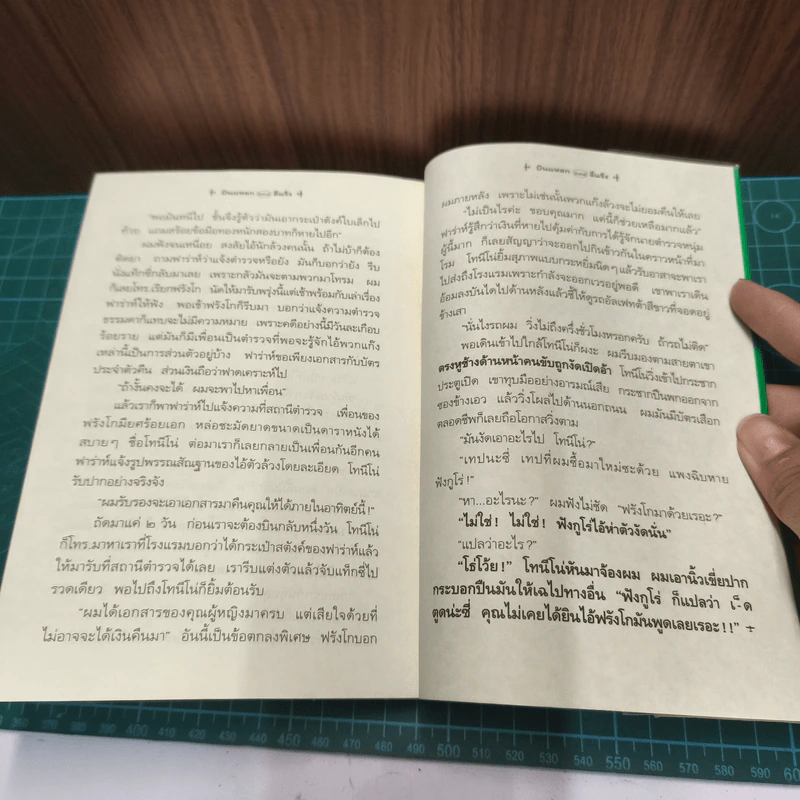 ปืนแพลก
ยิ้มจริง
"พอมันหนีไป ชั้นจึงรู้ตัวว่ามันเอากระเป๋าตังค์ใบเล็กไป
ด้วย แถมสร้อยข้อมือทองหนักสองบาทก็หายไปอีก"
ผมฟังจนเหนื่อย สงสัยไอ้นักล้วงคนนั้น ถ้าไม่บ้าก็ต้อง
ติดยา ถามฟาร่าห์ว่าแจ้งตำรวจหรือยัง มันก็บอกว่ายัง รีบ
นั่งแท็กซี่กลับมาเลย เพราะกลัวมันจะตามพวกมาโทรม ผม
ก็เลยโทร.เรียกฟรังโก นัดให้มารับพรุ่งนี้แต่เช้าพร้อมกับเล่าเรื่อง
ฟาร่าห์ให้ฟัง พอเช้าฟรังโกก็รีบมา บอกว่าแจ้งความตำรวจ
ธรรมดาก็แทบจะไม่มีความหมาย เพราะคดีอย่างนี้มีวันละเกือบ
ร้อยราย แต่มันก็มีเพื่อนเป็นตำรวจที่พอจะรู้จักไอ้พวกแก๊ง
เหล่านี้เป็นการส่วนตัวอยู่บ้าง ฟาร่าห์ขอเพียงเอกสารกับบัตร
ประจำตัวคืน ส่วนเงินถือว่าฟาดเคราะห์ไป
"ถ้างั้นคงจะได้ ผมจะพาไปหาเพื่อน"
แล้วเราก็พาฟาร่าห์ไปแจ้งความที่สถานีตำรวจ เพื่อนของ
ฟรังโกมียศร้อยเอก หล่อชะมัดยาดขนาดเป็นดาราหนังได้
สบายๆ ชื่อโทนีโน่ ต่อมาเราก็เลยกลายเป็นเพื่อนกันอีกคน
ฟาร่าห์แจ้งรูปพรรณสัณฐานของไอ้ตัวล้วงโดยละเอียด โทนีโน่
รับปากอย่างจริงจัง
"ผมรับรองจะเอาเอกสารมาคืนคุณให้ได้ภายในอาทิตย์นี้!"
ถัดมาแค่ ๒ วัน ก่อนเราจะต้องบินกลับหนึ่งวัน โทนีโน่
ก็โทร.มาหาเราที่โรงแรมบอกว่าได้กระเป๋าสตังค์ของฟาร่าห์แล้ว
ให้มารับที่สถานีตำรวจได้เลย เรารีบแต่งตัวแล้วจับแท็กซี่ไป
รวดเดียว พอไปถึงโทนีโน่ก็ยิ้มต้อนรับ
"ผมได้เอกสารของคุณผู้หญิงมาครบ แต่เสียใจด้วยที่
ไม่อาจจะได้เงินคืนมา" อันนี้เป็นข้อตกลงพิเศษ ฟรังโกบอก
ปืนแพลก
ยิ้มจริง
ผมภายหลัง เพราะไม่เช่นนั้นพวกแก๊งล้วงจะไม่ยอมคืนให้เลย
"ไม่เป็นไรค่ะ ขอบคุณมาก แค่นี้ก็ช่วยเหลือมากแล้ว"
ฟาร่าห์รู้สึกว่าเงินที่หายไปคุ้มค่ากับการได้รู้จักนายตำรวจหนุ่ม
ผู้นี้มาก ก็เลยสัญญาว่าจะออกไปกินข้าวกันในคราวหน้าที่มา
โรม โทนีโน่ยิ้มสุภาพแบบกระหยิ่มนิดๆ แล้วรับอาสาจะพาเรา
ไปส่งถึงโรงแรมเพราะกำลังจะออกเวรอยู่พอดี เขาพาเราเดิน
อ้อมลงบันไดไปด้านหลังแล้วชี้ให้ดูรถอัลเฟทต้าสีขาวที่จอดอยู่
ข้างเสา
"นั่นไงรถผม วิ่งไม่ถึงครึ่งชั่วโมงหรอกครับ ถ้ารถไม่ติด"
พอเดินเข้าไปใกล้โทนีโน่ก็ผงะ ผมรีบมองตามสายตาเขา
ตรงหูช้างด้านหน้าคนขับถูกงัดเปิดอ้า โทนีโน่วิ่งเข้าไปกระชาก
ประตูเปิด เขาทุบมืออย่างอารมณ์เสีย กระชากปืนพกออกจาก
ซองข้างเอว แล้ววิ่งโผล่ไปด้านนอกถนน ผมมันมีบัตรเสือก
ตลอดชีพก็เลยถือโอกาสวิ่งตาม
"มันงัดเอาอะไรไป โทนีโน่?"
"เทปน่ะซี่ เทปที่ผมซื้อมาใหม่ซะด้วย แพงฉิบหาย
ฟังกูโร่!"
"หา...อะไรนะ?" ผมฟังไม่ชัด "ฟรังโกมาด้วยเรอะ?"
"ไม่ใช่! ไม่ใช่! ฟังกูโร่ไอ้ห่าตัวงัดนั่น"
"แปลว่าอะไร?"
"โธ่โว้ย!" โทนีโน่หันมาจ้องผม ผมเอานิ้วเขี่ยปาก
กระบอกปืนมันให้เฉไปทางอื่น "ฟังกูโร่ ก็แปลว่า เ-็ด
ตูดน่ะซี่ คุณไม่เคยได้ยินไอ้ฟรังโกมันพูดเลยเรอะ!!"
400
410
420
430
440
450
460
470
480
490
500
510
520
530
540
550
560
570
580
590